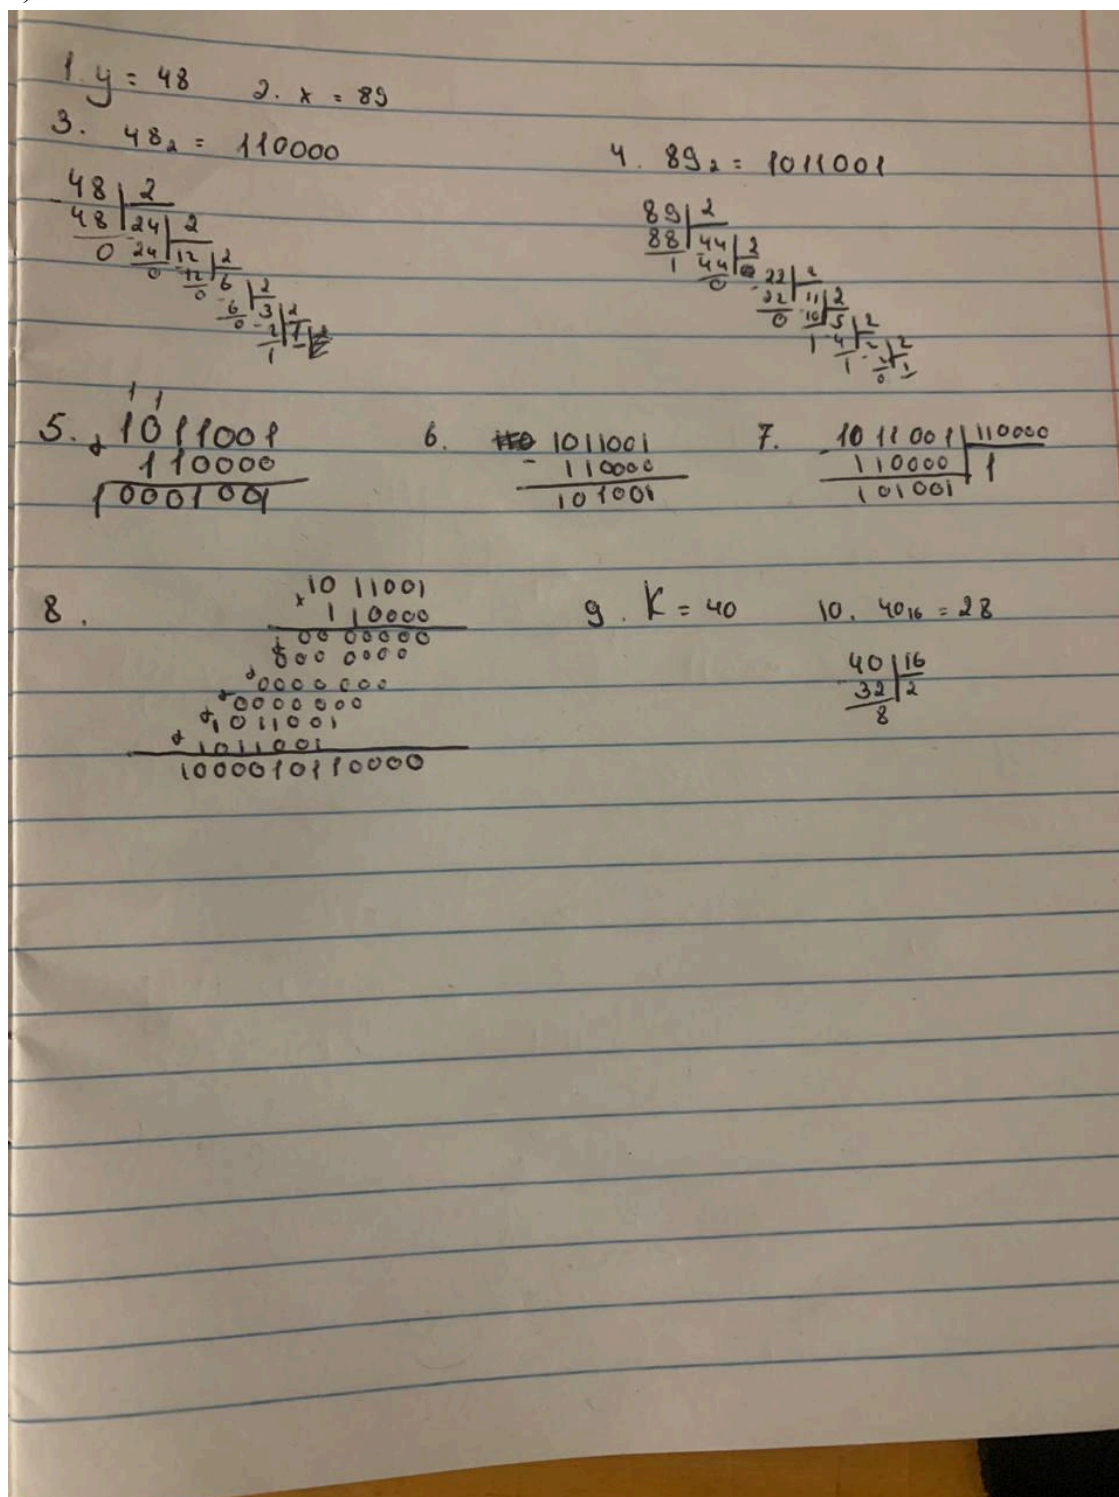 1. y = 48 2. x = 89
3. 48₂ = 110000 4. 89₂ = 1011001
48 2
48 24 2
0 24 12 2
0 12 6 2
0 6 3 2
0 2 1
1
89 2
88 44 2
1 44 22 2
0 22 11 2
0 10 5 2
1 4 2 2
1 2 1
0
1 1
5. + 1011001
110000
10001001
6. 1011001
- 110000
101001
7. - 1011001 110000
110000 1
101001
8. × 1011001
110000
+ 0000000
0000000
+ 0000000
+ 0000000
+ 1011001
+ 1011001
1000010110000
9. K = 40 10. 40₁₆ = 28
40 16
32 2
8